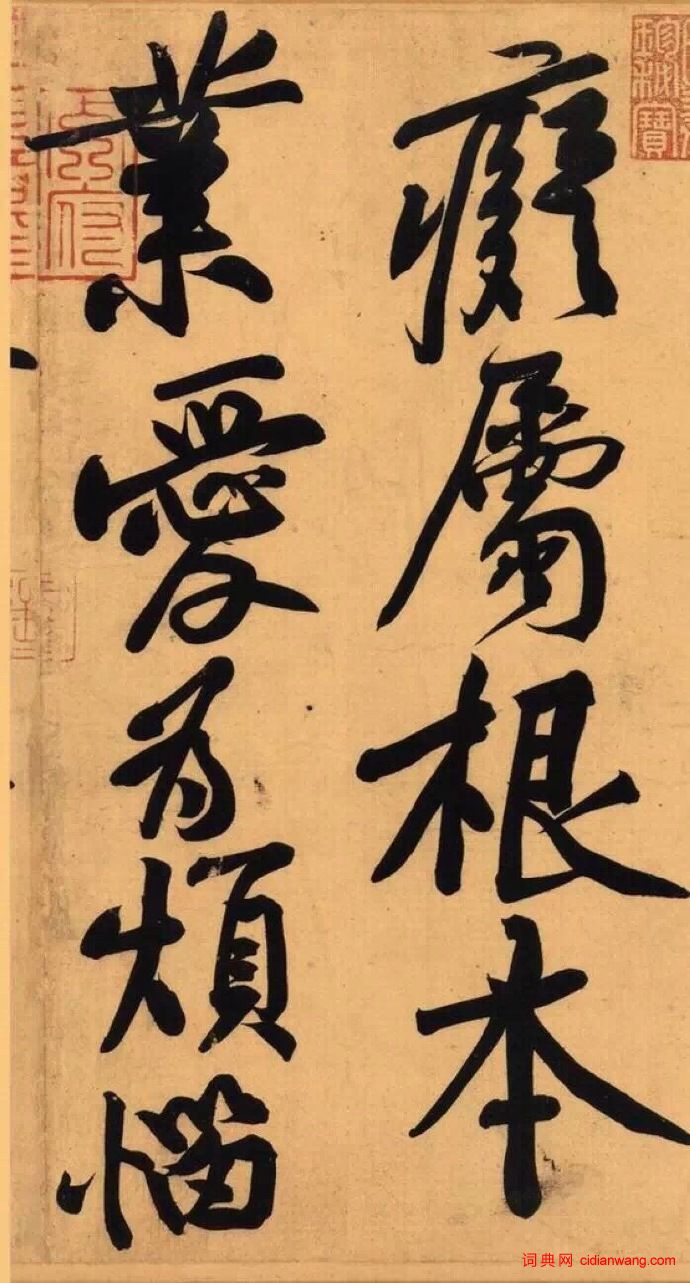 癡屬根本
業愛為煩惱
词典网 cidianwang.com